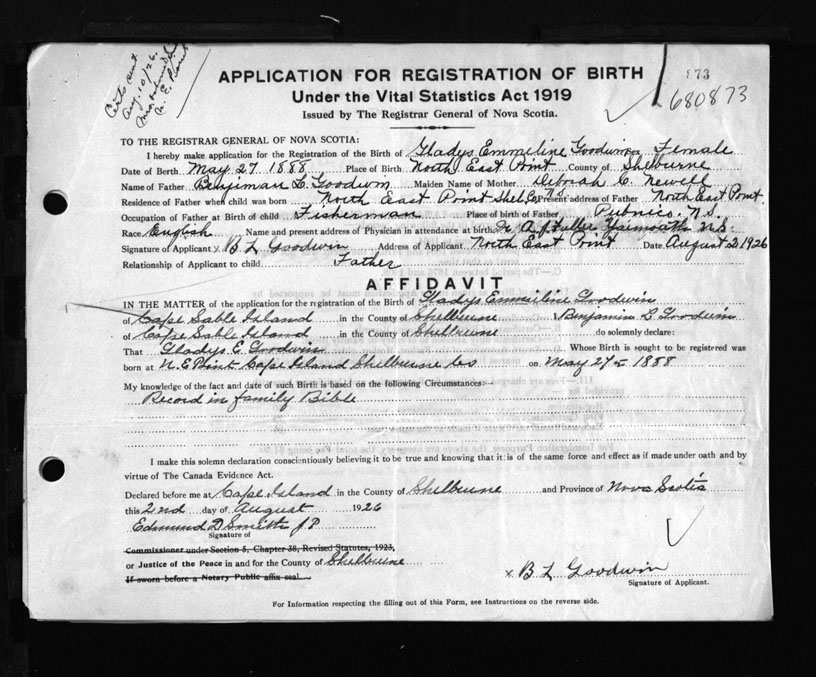 Cert sent
Aug. 10/26.
N. E. Point
APPLICATION FOR REGISTRATION OF BIRTH
873
680873
Under the Vital Statistics Act 1919
Issued by The Registrar General of Nova Scotia.
TO THE REGISTRAR GENERAL OF NOVA SCOTIA:
I hereby make application for the Registration of the Birth of Gladys Emmiline Goodwin Sex Female
Date of Birth May 27 1888 Place of Birth North East Point County of Shelburne
Name of Father Benjiman L. Goodwin Maiden Name of Mother Deborah C. Newell
Residence of Father when child was born North East Point Shel Co, N.S. Present address of Father North East Point.
Occupation of Father at Birth of child Fisherman Place of birth of Father Pubnico. N.S.
Race English Name and present address of Physician in attendance at birth A. J. Fuller Yarmouth N.S.
Signature of Applicant x B L Goodwin Address of Applicant North East Point Date August 2 1926
Relationship of Applicant to child Father
AFFIDAVIT
IN THE MATTER of the application for the registration of the Birth of Gladys Emmiline Goodwin
of Cape Sable Island in the County of Shelburne I Benjamin L Goodwin
of Cape Sable Island in the County of Shelburne do solemnly declare:
That Gladys E. Goodwin Whose Birth is sought to be registered was
born at N. E Point Cape Island Shelburne Co on May 27 1888
My knowledge of the fact and date of such Birth is based on the following Circumstances:-
Record in family Bible
I make this solemn declaration conscientiously believing it to be true and knowing that it is of the same force and effect as if made under oath and by
virtue of The Canada Evidence Act.
Declared before me at Cape Island in the County of Shelburne and Province of Nova Scotia
this 2nd day of August 1926
Edmund D Smith J P
Signature of
Commissioner under Section 5, Chapter 38, Revised Statutes, 1923,
or Justice of the Peace in and for the County of Shelburne
If sworn before a Notary Public affix seal.
x B L Goodwin
Signature of Applicant.
For Information respecting the filling out of this Form, see Instructions on the reverse side.